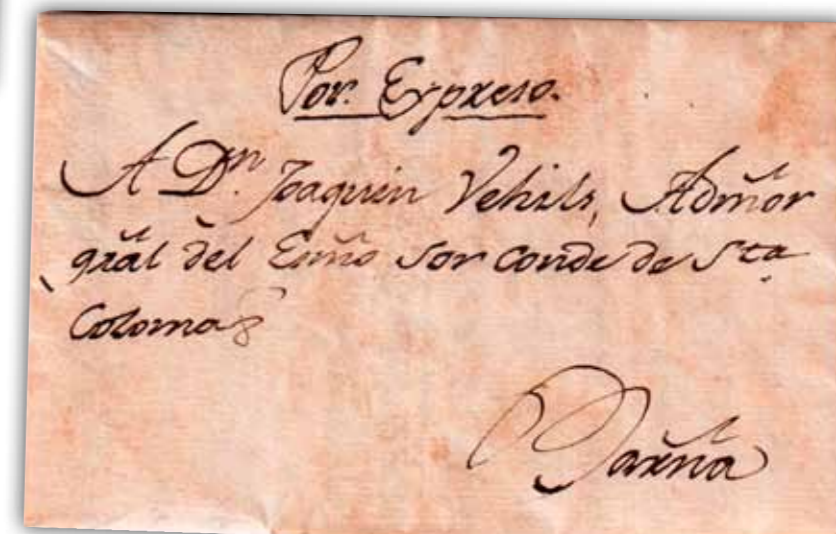 Por. Expreso.
A Dn. Joaquin Vehils, Admõr
grãl del Exmõ Sor Conde de Sta
Coloma
Barnã